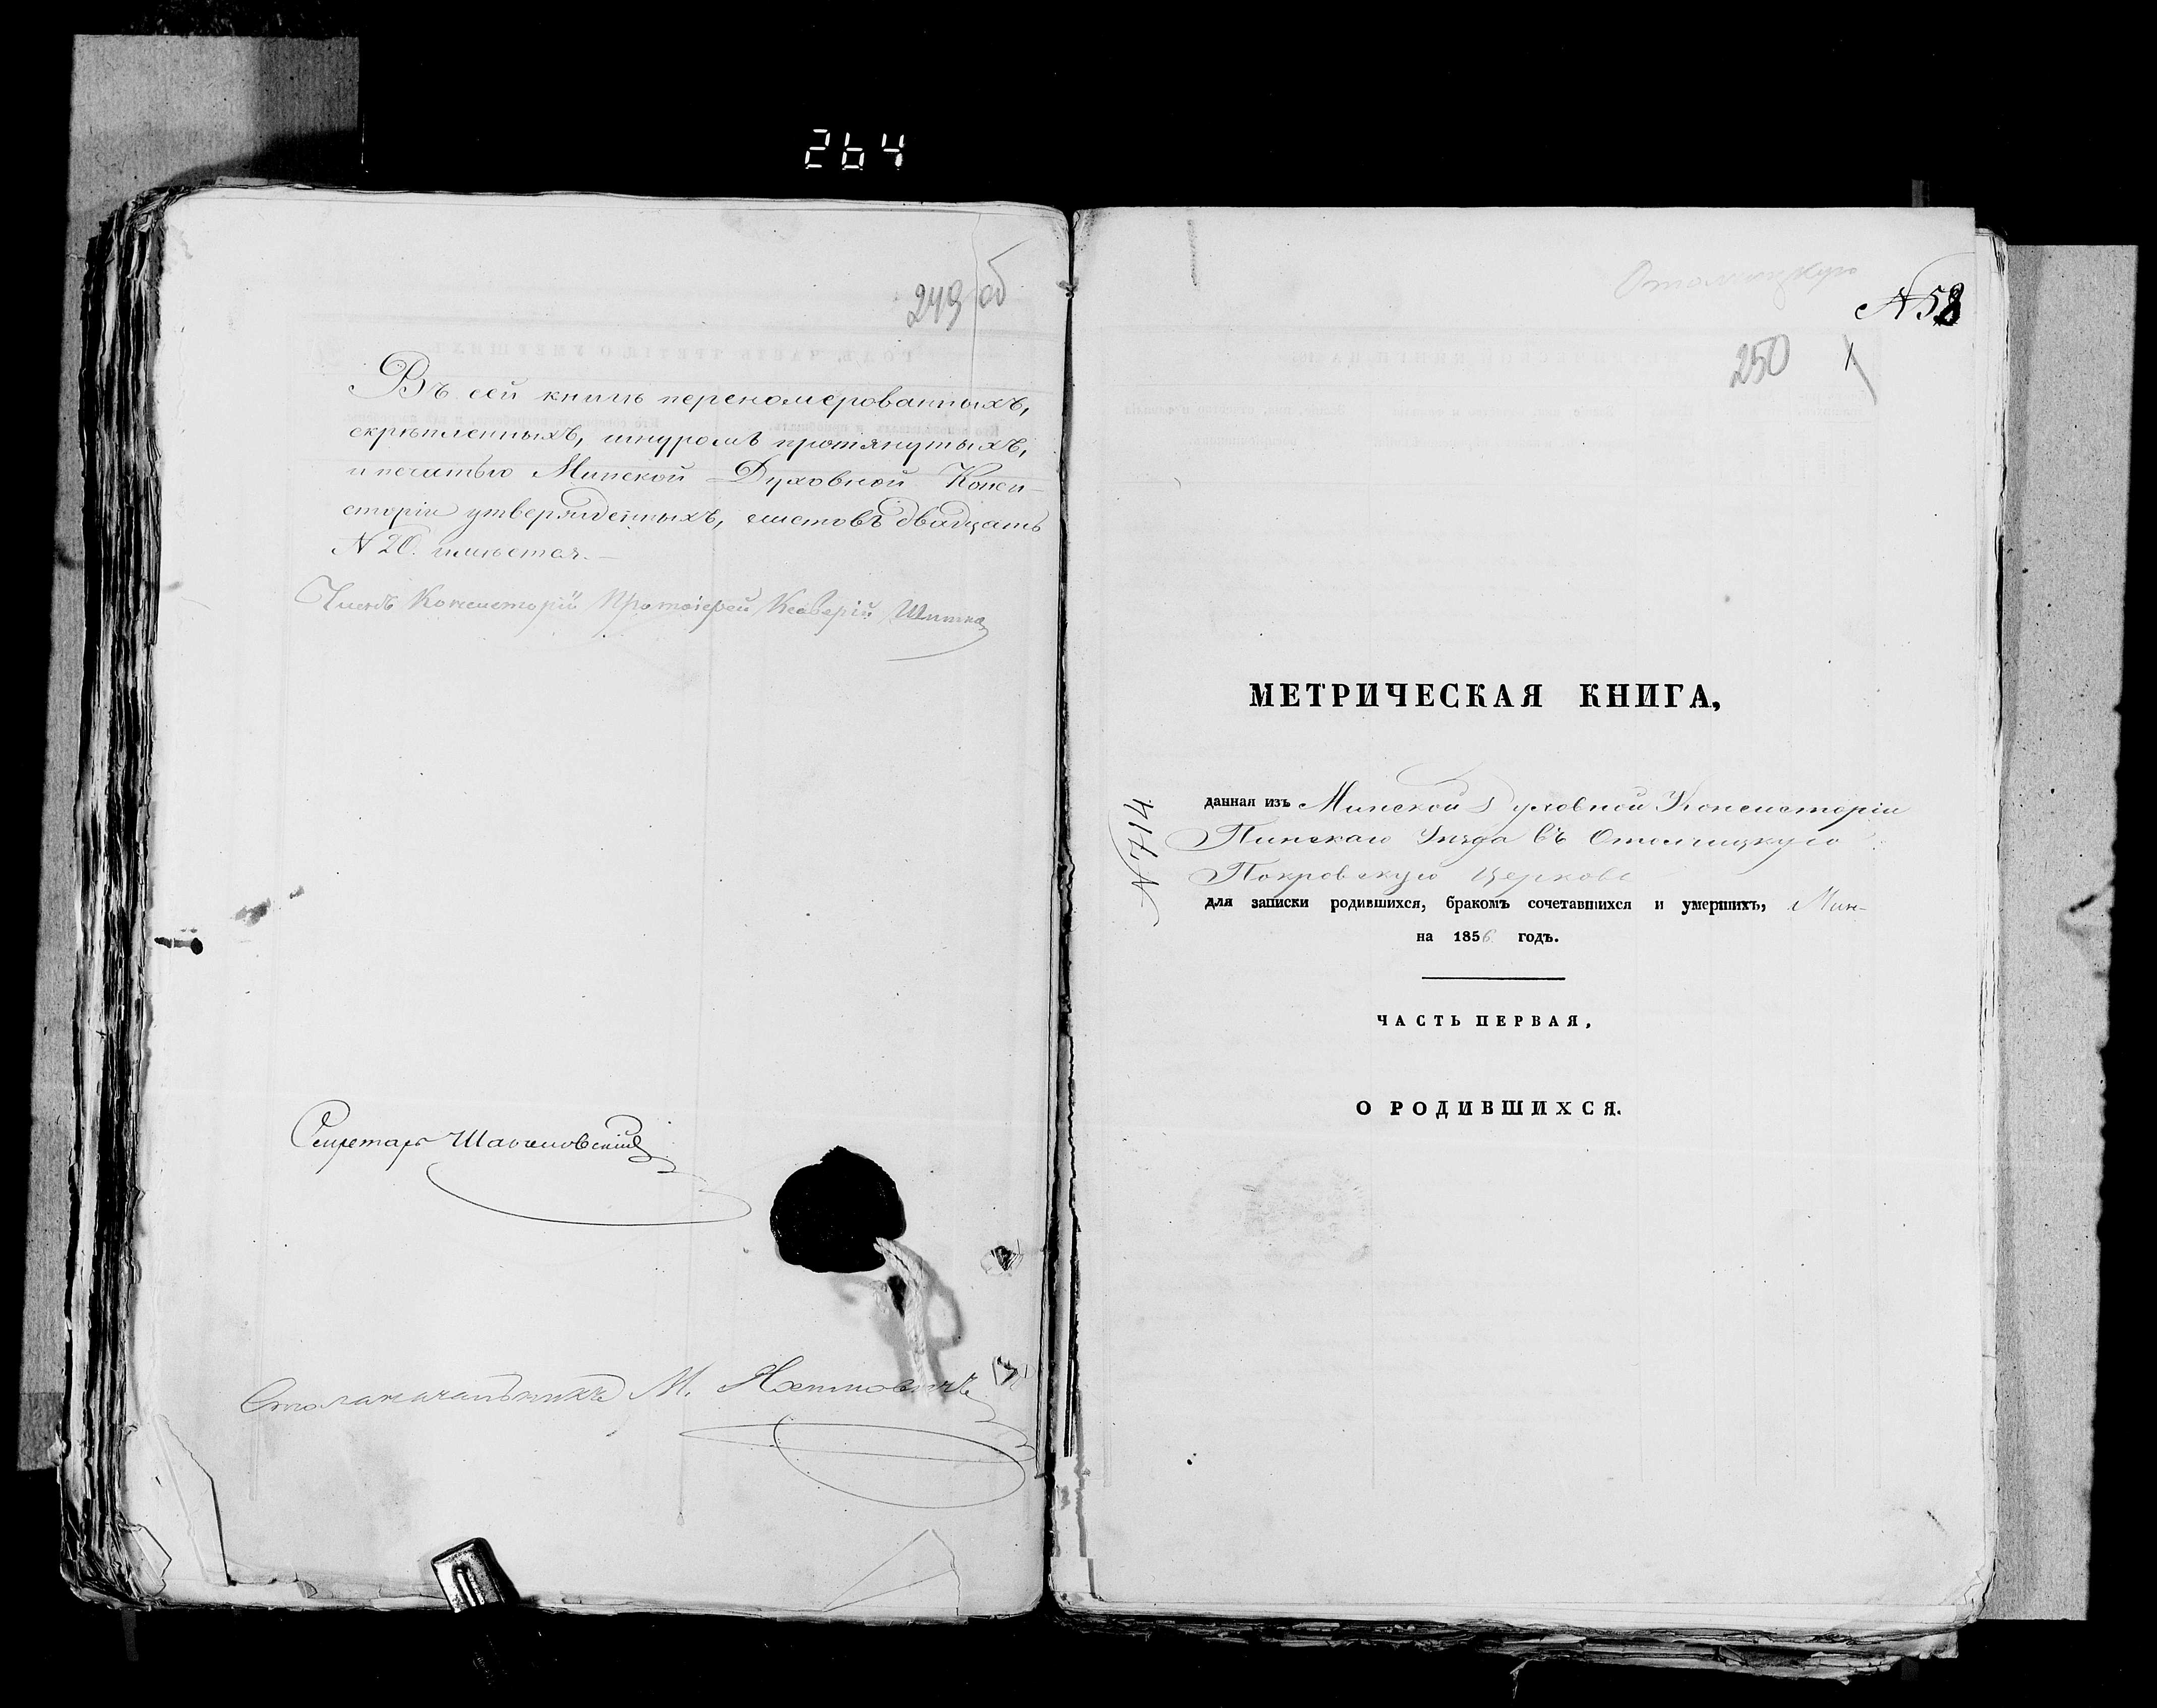 264
249 об
Въ сей книгѣ перенамерованныхъ,
скрѣпленныхъ, шнуромъ протянутыхъ,
и печатью Минской Духовной Конси-
сторіи утвержденныхъ, листовъ двадцать
N 20. имѣется.—
Членъ Консисторіи Протоіерей Ксаверій
Секретарь
Столоначальникъ М.
Отолчицкую
N 58
250 1
МЕТРИЧЕСКАЯ КНИГА,
N 714
данная изъ Минской Духовной Консисторіи
Пинскаго Уѣзда въ Отолчицкую
Покровскую Церковь
для записки родившихся, бракомъ сочетавшихся и умершихъ,
на 1856 годъ.
ЧАСТЬ ПЕРВАЯ,
О РОДИВШИХСЯ.